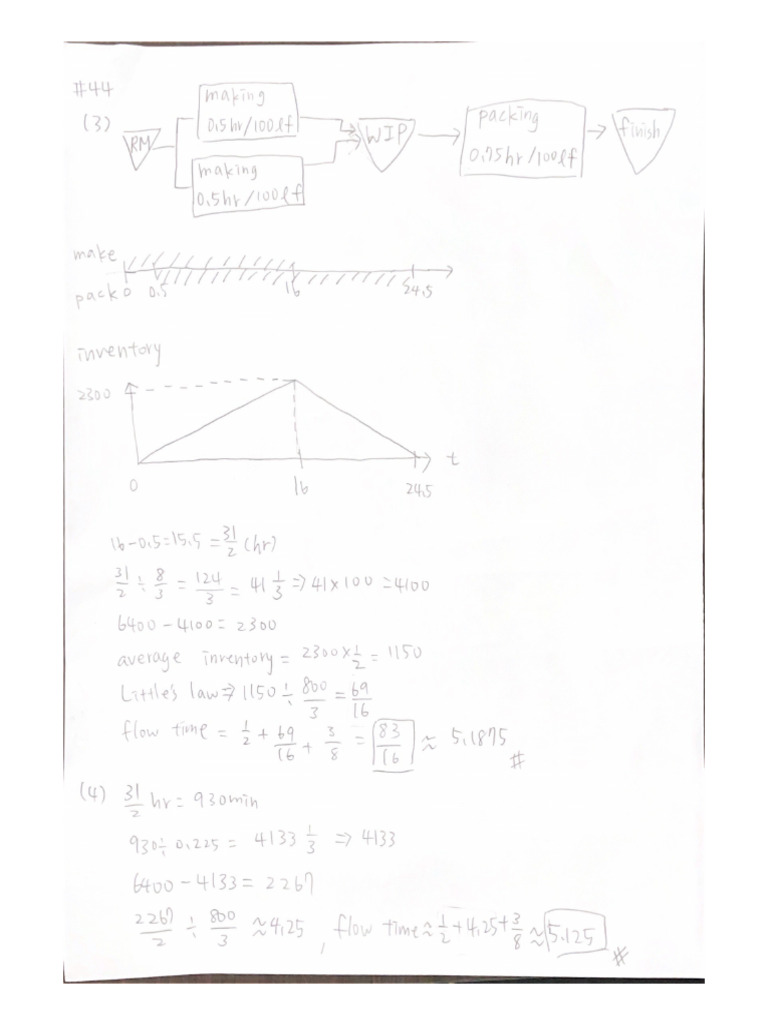 #44
(3)
making
0.5hr/100lf
RM
making
0.5hr/100lf
WIP
packing
0.75hr/100lf
finish
make
pack 0 0.5 16 24.5
inventory
2300
t
0 16 24.5
16-0.5=15.5 = 31/2 (hr)
31/2 ÷ 8/3 = 124/3 = 41 1/3 => 41×100 = 4100
6400-4100 = 2300
average inventory = 2300×1/2 = 1150
Little's law => 1150 ÷ 800/3 = 69/16
flow time = 1/2 + 69/16 + 3/8 = 83/16 ≈ 5.1875 #
(4) 31/2 hr = 930min
930÷0.225 = 4133 1/3 => 4133
6400-4133 = 2267
2267/2 ÷ 800/3 ≈ 4.25, flow time ≈ 1/2+4.25+3/8 ≈ 5.125 #